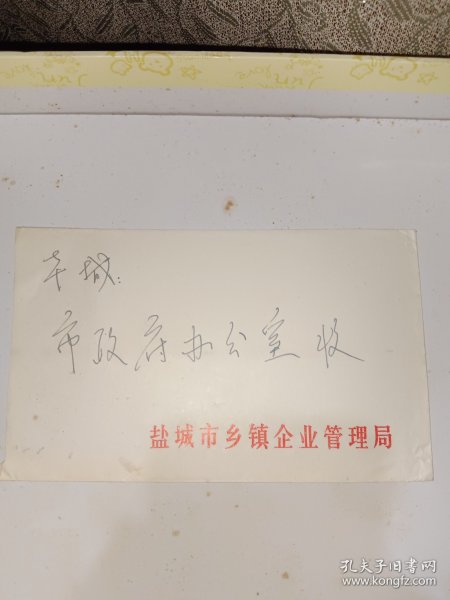 本城：
市政府办公室 收
盐城市乡镇企业管理局
孔夫子旧书网
www.kongfz.com